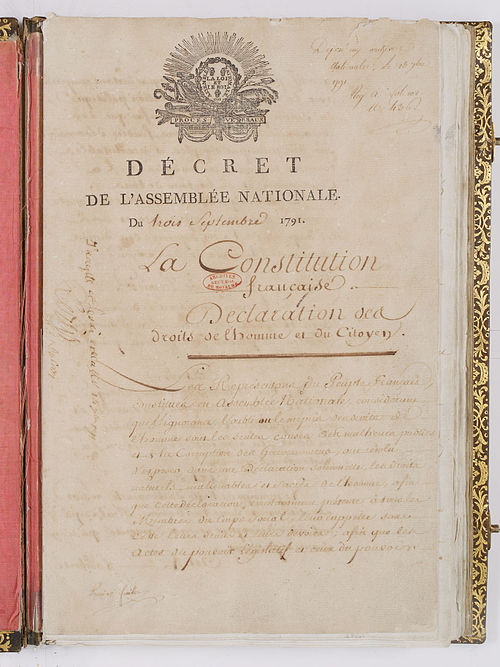 LA LOI
ET
LE ROI
PROCÈS VERBAUX
DÉCRET
DE L'ASSEMBLÉE NATIONALE.
Du trois Septembre 1791.
La Constitution
française
Déclaration des
droits de l'homme et du Citoyen.
ARCHIVES
Les Représentans du Peuple français
constitués en Assemblée Nationale, considérant
que l'ignorance, l'oubli ou le mépris des droits de
l'homme sont les seules causes des malheurs publics
et de la Corruption des Gouvernemens, ont résolu
d'exposer dans une Déclaration solennelle, les droits
naturels, inaliénables et sacrés de l'homme, afin
que cette déclaration, constamment présente à tous les
Membres du Corps social, leur rappelle sans
cesse leurs droits et leurs devoirs; afin que les
Actes du pouvoir législatif et ceux du pouvoir